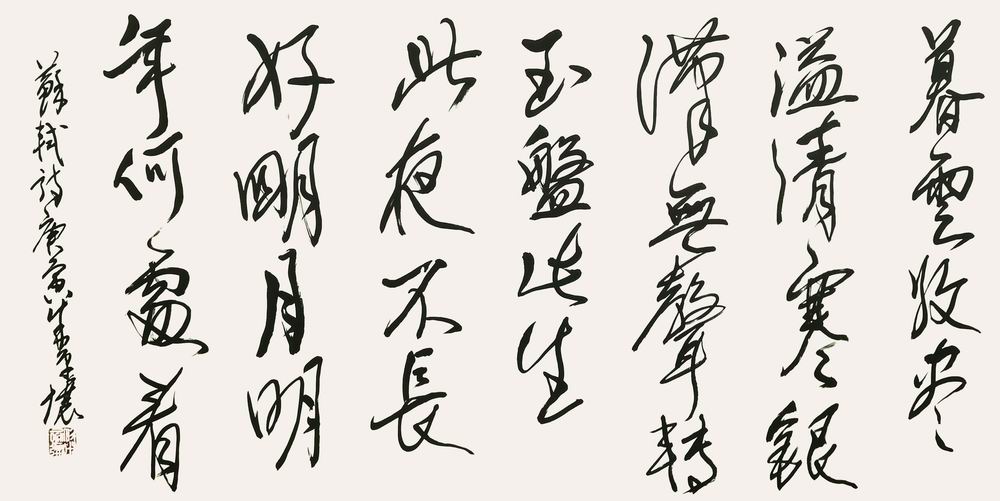 暮雲收尽
溢清寒銀
漢無聲轉
玉盤此生
此夜不長
好明月明
年何處看
蘇軾詩庚寅